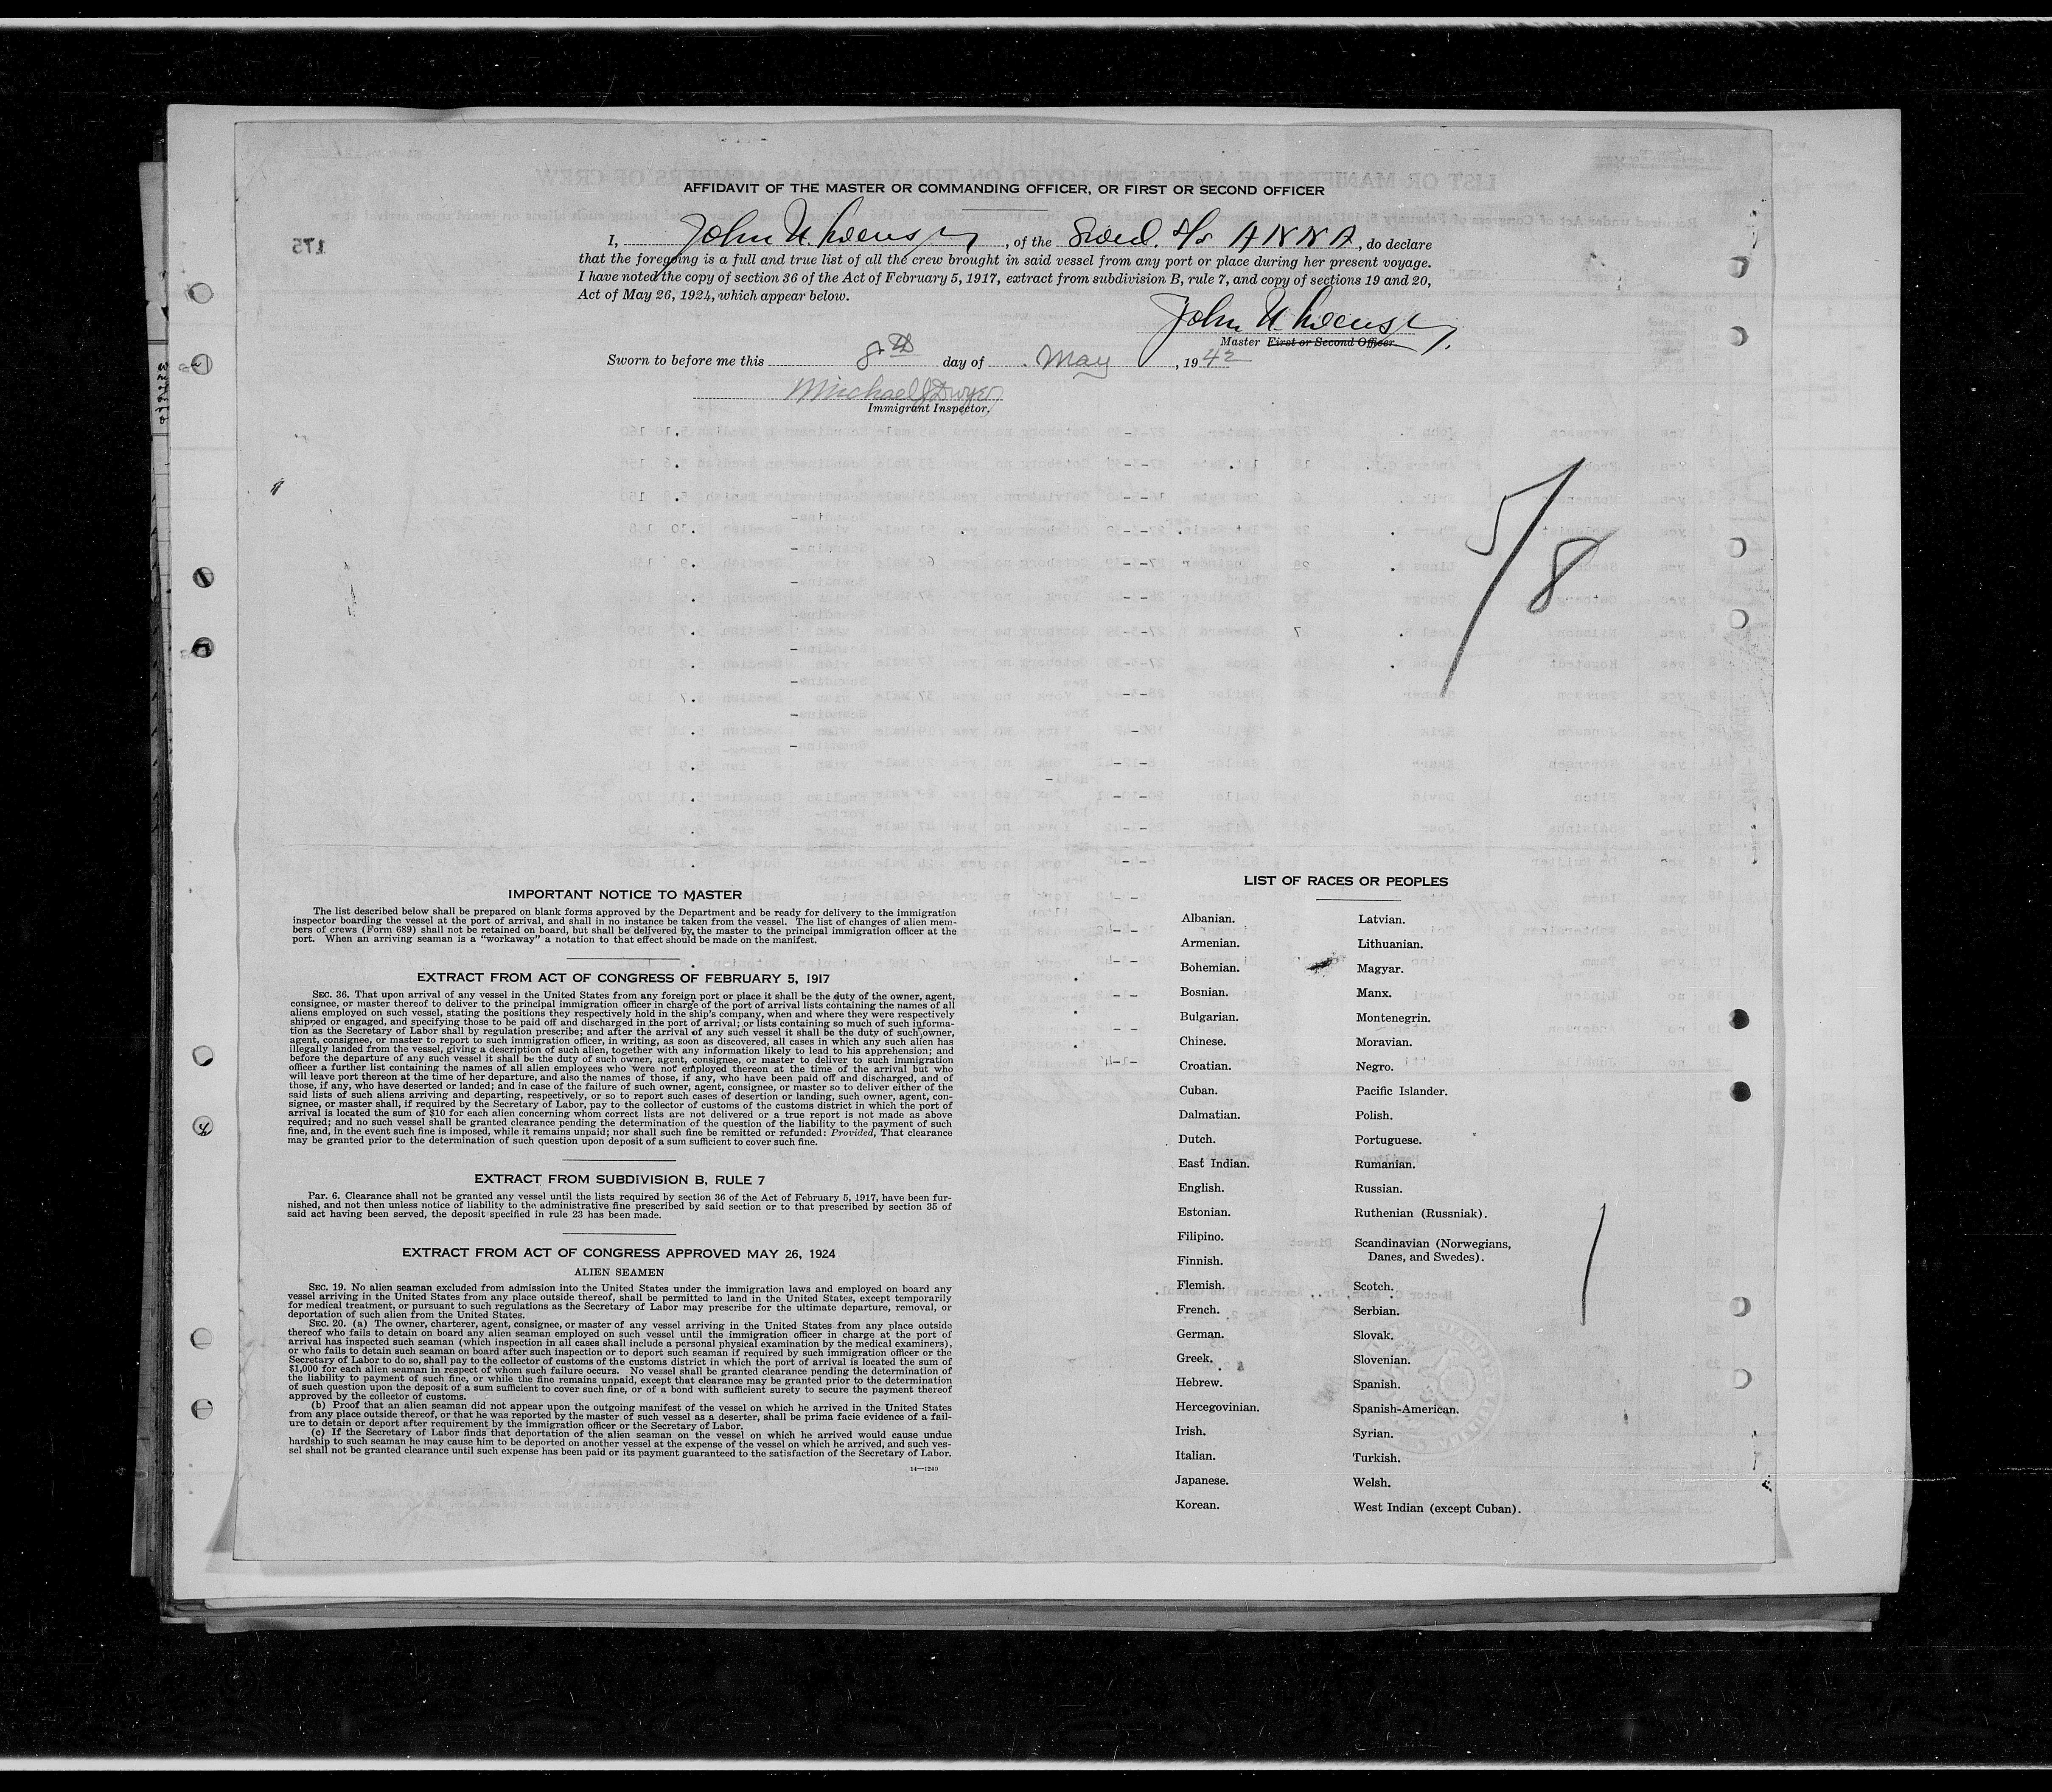 AFFIDAVIT OF THE MASTER OR COMMANDING OFFICER, OR FIRST OR SECOND OFFICER
I, John , of the Swed. S/S ANNA, do declare
that the foregoing is a full and true list of all the crew brought in said vessel from any port or place during her present voyage.
I have noted the copy of section 36 of the Act of February 5, 1917, extract from subdivision B, rule 7, and copy of sections 19 and 20,
Act of May 26, 1924, which appear below.
John
Master First or Second Officer.
Sworn to before me this 8th day of May, 1942
Michael J Dwyer
Immigrant Inspector.
175
5/8
IMPORTANT NOTICE TO MASTER
The list described below shall be prepared on blank forms approved by the Department and be ready for delivery to the immigration
inspector boarding the vessel at the port of arrival, and shall in no instance be taken from the vessel. The list of changes of alien mem-
bers of crews (Form 689) shall not be retained on board, but shall be delivered by the master to the principal immigration officer at the
port. When an arriving seaman is a "workaway" a notation to that effect should be made on the manifest.
EXTRACT FROM ACT OF CONGRESS OF FEBRUARY 5, 1917
SEC. 36. That upon arrival of any vessel in the United States from any foreign port or place it shall be the duty of the owner, agent,
consignee, or master thereof to deliver to the principal immigration officer in charge of the port of arrival lists containing the names of all
aliens employed on such vessel, stating the positions they respectively hold in the ship's company, when and where they were respectively
shipped or engaged, and specifying those to be paid off and discharged in the port of arrival; or lists containing so much of such informa-
tion as the Secretary of Labor shall by regulation prescribe; and after the arrival of any such vessel it shall be the duty of such owner,
agent, consignee, or master to report to such immigration officer, in writing, as soon as discovered, all cases in which any such alien has
illegally landed from the vessel, giving a description of such alien, together with any information likely to lead to his apprehension; and
before the departure of any such vessel it shall be the duty of such owner, agent, consignee, or master to deliver to such immigration
officer a further list containing the names of all alien employees who were not employed thereon at the time of the arrival but who
will leave port thereon at the time of her departure, and also the names of those, if any, who have been paid off and discharged, and of
those, if any, who have deserted or landed; and in case of the failure of such owner, agent, consignee, or master so to deliver either of the
said lists of such aliens arriving and departing, respectively, or so to report such cases of desertion or landing, such owner, agent, con-
signee, or master shall, if required by the Secretary of Labor, pay to the collector of customs of the customs district in which the port of
arrival is located the sum of $10 for each alien concerning whom correct lists are not delivered or a true report is not made as above
required; and no such vessel shall be granted clearance pending the determination of the question of the liability to the payment of such
fine, and, in the event such fine is imposed, while it remains unpaid; nor shall such fine be remitted or refunded: Provided, That clearance
may be granted prior to the determination of such question upon deposit of a sum sufficient to cover such fine.
EXTRACT FROM SUBDIVISION B, RULE 7
Par. 6. Clearance shall not be granted any vessel until the lists required by section 36 of the Act of February 5, 1917, have been fur-
nished, and not then unless notice of liability to the administrative fine prescribed by said section or to that prescribed by section 35 of
said act having been served, the deposit specified in rule 23 has been made.
EXTRACT FROM ACT OF CONGRESS APPROVED MAY 26, 1924
ALIEN SEAMEN
SEC. 19. No alien seaman excluded from admission into the United States under the immigration laws and employed on board any
vessel arriving in the United States from any place outside thereof, shall be permitted to land in the United States, except temporarily
for medical treatment, or pursuant to such regulations as the Secretary of Labor may prescribe for the ultimate departure, removal, or
deportation of such alien from the United States.
SEC. 20. (a) The owner, charterer, agent, consignee, or master of any vessel arriving in the United States from any place outside
thereof who fails to detain on board any alien seaman employed on such vessel until the immigration officer in charge at the port of
arrival has inspected such seaman (which inspection in all cases shall include a personal physical examination by the medical examiners),
or who fails to detain such seaman on board after such inspection or to deport such seaman if required by such immigration officer or the
Secretary of Labor to do so, shall pay to the collector of customs of the customs district in which the port of arrival is located the sum of
$1,000 for each alien seaman in respect of whom such failure occurs. No vessel shall be granted clearance pending the determination of
the liability to payment of such fine, or while the fine remains unpaid, except that clearance may be granted prior to the determination
of such question upon the deposit of a sum sufficient to cover such fine, or of a bond with sufficient surety to secure the payment thereof
approved by the collector of customs.
(b) Proof that an alien seaman did not appear upon the outgoing manifest of the vessel on which he arrived in the United States
from any place outside thereof, or that he was reported by the master of such vessel as a deserter, shall be prima facie evidence of a fail-
ure to detain or deport after requirement by the immigration officer or the Secretary of Labor.
(c) If the Secretary of Labor finds that deportation of the alien seaman on the vessel on which he arrived would cause undue
hardship to such seaman he may cause him to be deported on another vessel at the expense of the vessel on which he arrived, and such ves-
sel shall not be granted clearance until such expense has been paid or its payment guaranteed to the satisfaction of the Secretary of Labor.
14—1240
LIST OF RACES OR PEOPLES
Albanian.
Armenian.
Bohemian.
Bosnian.
Bulgarian.
Chinese.
Croatian.
Cuban.
Dalmatian.
Dutch.
East Indian.
English.
Estonian.
Filipino.
Finnish.
Flemish.
French.
German.
Greek.
Hebrew.
Hercegovinian.
Irish.
Italian.
Japanese.
Korean.
Latvian.
Lithuanian.
Magyar.
Manx.
Montenegrin.
Moravian.
Negro.
Pacific Islander.
Polish.
Portuguese.
Rumanian.
Russian.
Ruthenian (Russniak).
Scandinavian (Norwegians,
Danes, and Swedes).
Scotch.
Serbian.
Slovak.
Slovenian.
Spanish.
Spanish-American.
Syrian.
Turkish.
Welsh.
West Indian (except Cuban).